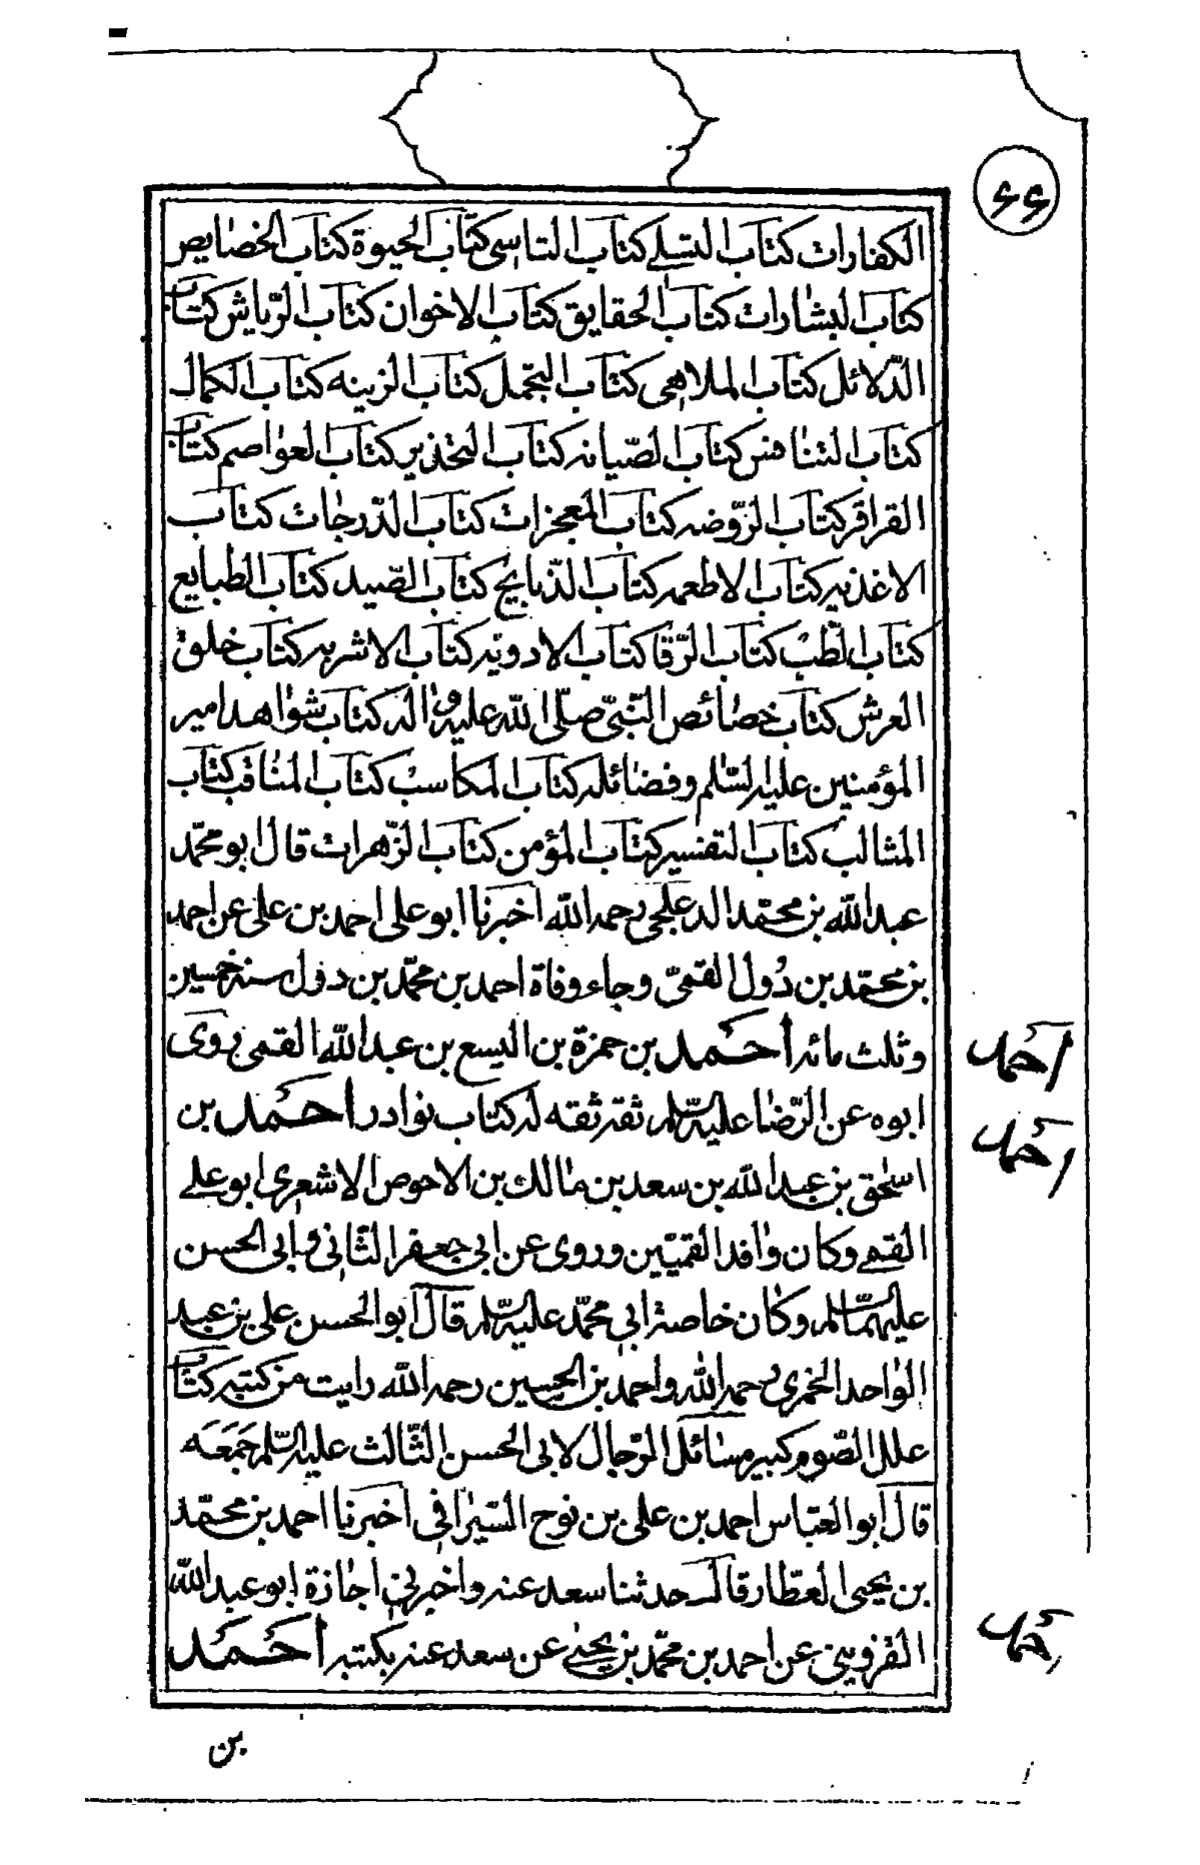 ۶۶
الكفارات كتاب التسلى كتاب التاسى كتاب الحيوة كتاب الخصايص
كتاب البشارات كتاب الحقايق كتاب الاخوان كتاب الرياش كتاب
الدلائل كتاب الملاهى كتاب التجمل كتاب الزينه كتاب الكمال
كتاب التنافس كتاب الصيانه كتاب التحذير كتاب العواصم كتاب
القراقر كتاب الروضه كتاب المعجزات كتاب الدرجات كتاب
الاغذيه كتاب الاطعمه كتاب الذبايح كتاب الصيد كتاب الطبايع
كتاب الطب كتاب الرقا كتاب الادويه كتاب الاشربه كتاب خلق
العرش كتاب خصائص النبى صلى الله عليه واله كتاب شواهد امير
المؤمنين عليه السلم وفضائله كتاب المكاسب كتاب المناقب كتاب
المثالب كتاب التفسير كتاب المؤمن كتاب الزهرات قال ابو محمد
عبد الله بن محمد الدعلجى رحمه الله اخبرنا ابو على احمد بن على عن احمد
بن محمد بن دُول القمىّ وجاء وفاة احمد بن محمد بن دول سنه خمسين
وثلث مائه احمد بن حمزة بن اليسع بن عبد الله القمى روى
احمد
ابوه عن الرضا عليه السلم ثقه ثقه له كتاب نوادر احمد بن
احمد
اسحق بن عبد الله بن سعد بن مالك بن الاحوص الاشعرى ابو على
القمى وكان وافد القميين وروى عن ابى جعفر الثانى وابى الحسن
عليهما السلم وكان خاصة ابى محمد عليه السلم قال ابو الحسن على بن عبد
الواحد الخمرى رحمه الله واحمد بن الحسين رحمه الله رايت من كتبه كتاب
علل الصوم كبير مسائل الرجال لابى الحسن الثالث عليه السلم جَمَعَه
قال ابو العباس احمد بن على بن نوح السيرافى اخبرنا احمد بن محمد
بن يحيى العطار قال حدثنا سعد عنه واخبرنى اجازة ابو عبد الله
القزوينى عن احمد بن محمد بن يحيى عن سعد عنه بكتبه احمد
احمد
بن